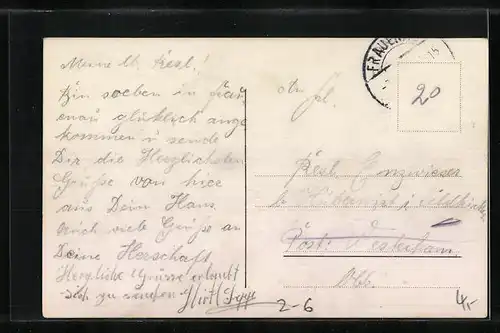 Meine lb. Resl!
Bin soeben in Frau-
enau glücklich ange
kommen u sende
Dir die Herzlichsten
Grüße von hier
aus Dein Hans
auch viele Grüße an
Deine Herschaft
Herzliche Grüsse erlaubt
sich zu senden Hirtl Sepp
2-6
FRAUENAU
20
An Frl.
Resl Enzwieser
b.
Post: Westerham
Obb.
4,-